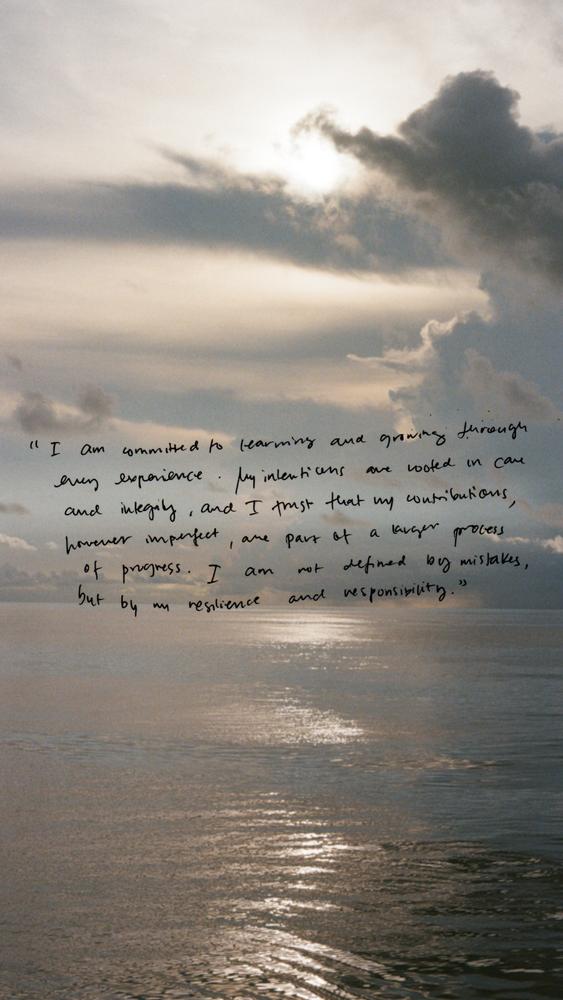 "I am committed to learning and growing through
every experience. My intentions are rooted in care
and integrity, and I trust that my contributions,
however imperfect, are part of a larger process
of progress. I am not defined by mistakes,
but by my resilience and responsibility."